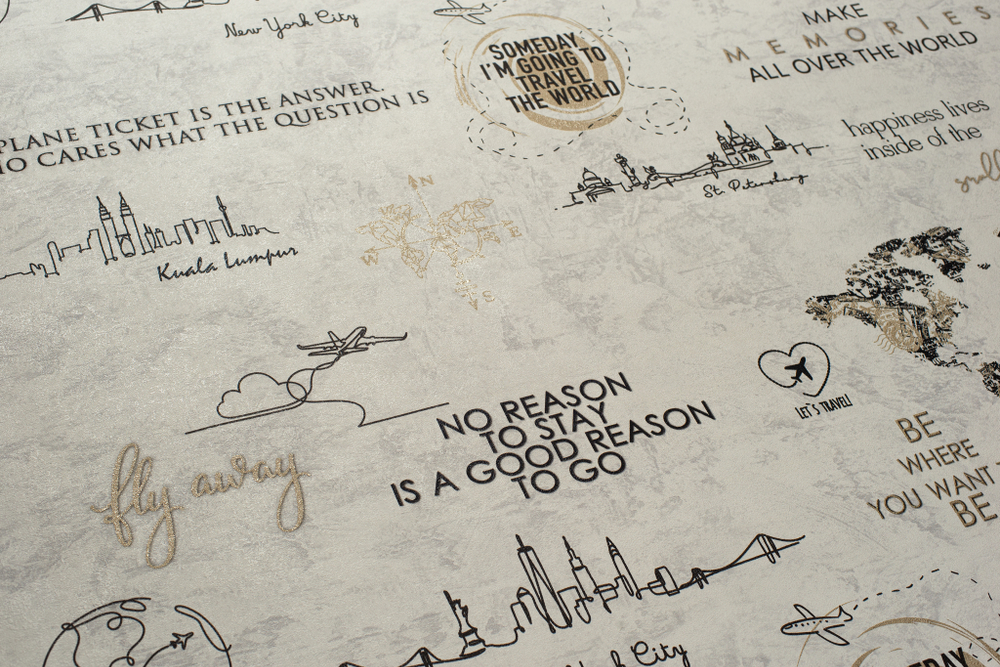 New York City
SOMEDAY
I'M GOING TO
TRAVEL
THE WORLD
MAKE
MEMORIES
ALL OVER THE WORLD
PLANE TICKET IS THE ANSWER.
CARES WHAT THE QUESTION IS
happiness lives
inside of the
St. Petersburg
Kuala Lumpur
N
W
E
S
LET'S TRAVEL!
NO REASON
TO STAY
IS A GOOD REASON
TO GO
fly away
BE
WHERE
YOU WANT
BE
City